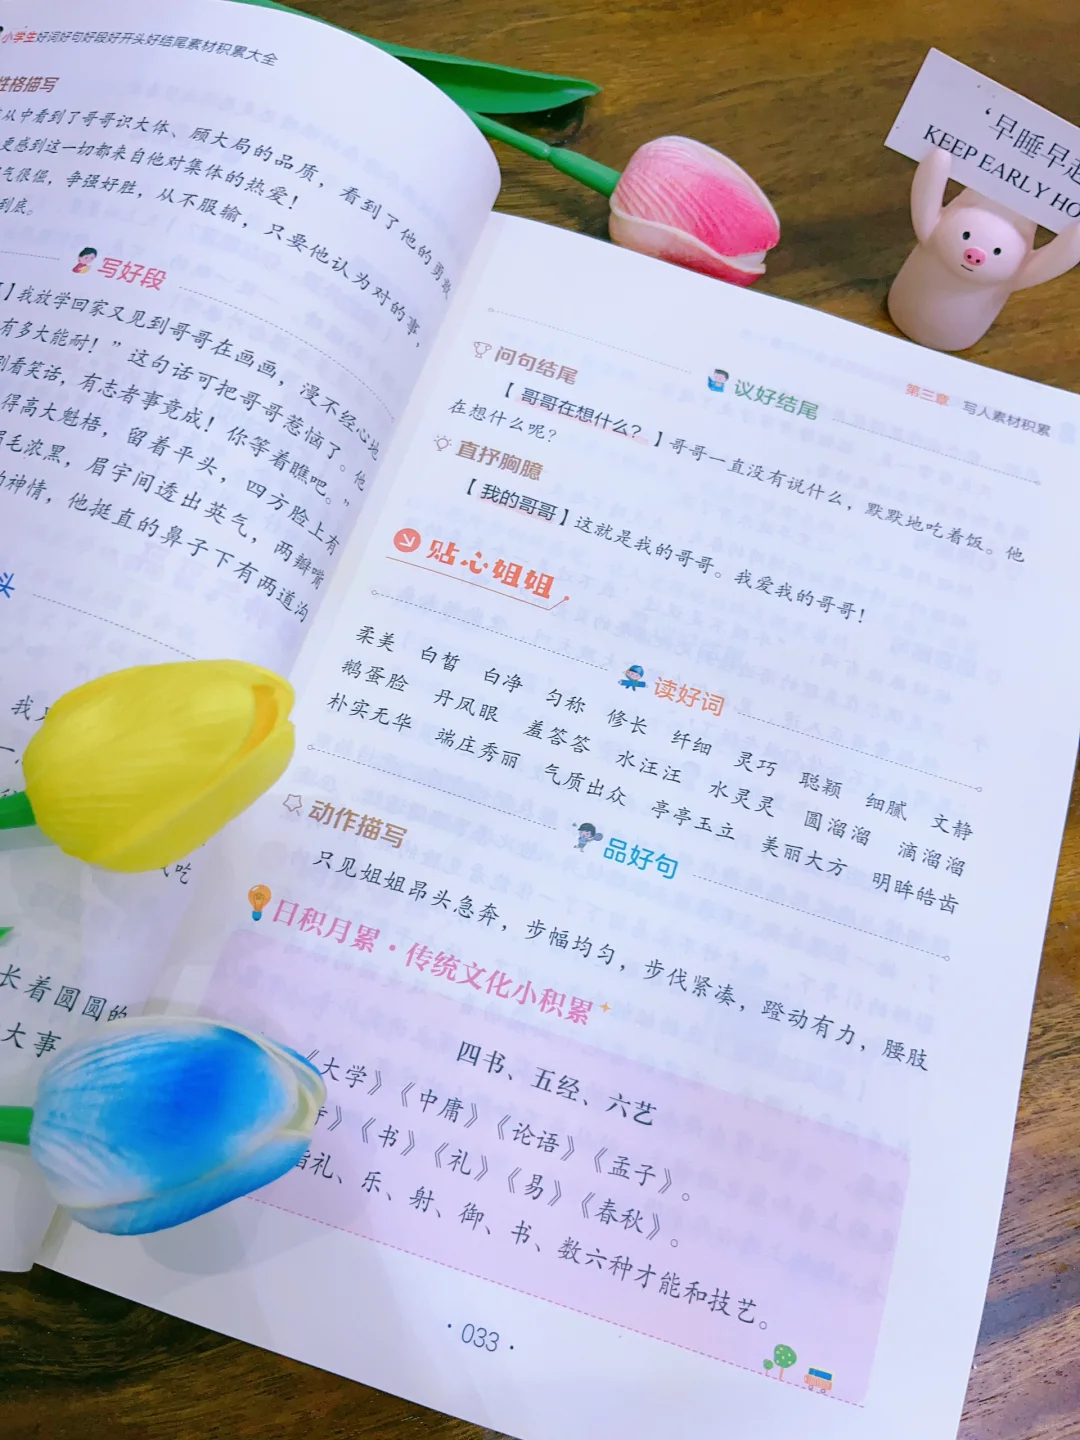 小学生好词好句好段好开头好结尾素材积累大全
性格描写
从中看到了哥哥识大体、顾大局的品质，看到了他的勇敢
更感到这一切都来自他对集体的热爱！
气很倔，争强好胜，从不服输，只要他认为对的事，
到底。
写好段
】我放学回家又见到哥哥在画画，漫不经心地
有多大能耐！”这句话可把哥哥惹恼了。他
别看笑话，有志者事竟成！你等着瞧吧。”
得高大魁梧，留着平头，四方脸上有
眉毛浓黑，眉宇间透出英气，两瓣嘴
的神情，他挺直的鼻子下有两道沟
头
我
一，
吃
长着圆圆的
大事
‘早睡早起
KEEP EARLY HO
第三章 写人素材积累
议好结尾
问句结尾
【哥哥在想什么？】哥哥一直没有说什么，默默地吃着饭。他
在想什么呢？
直抒胸臆
【我的哥哥】这就是我的哥哥。我爱我的哥哥！
贴心姐姐
读好词
柔美 白皙 白净 匀称 修长 纤细 灵巧 聪颖 细腻 文静
鹅蛋脸 丹凤眼 羞答答 水汪汪 水灵灵 圆溜溜 滴溜溜
朴实无华 端庄秀丽 气质出众 亭亭玉立 美丽大方 明眸皓齿
品好句
动作描写
只见姐姐昂头急奔，步幅均匀，步伐紧凑，蹬动有力，腰肢
日积月累·传统文化小积累
四书、五经、六艺
《大学》《中庸》《论语》《孟子》。
》《书》《礼》《易》《春秋》。
指礼、乐、射、御、书、数六种才能和技艺。
·033·